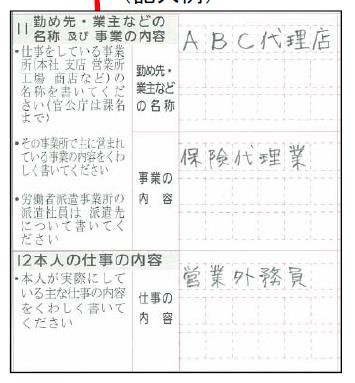 (記入例)
11 勤め先・業主などの
名称 及び 事業の内容
・仕事をしている事業
所(本社 支店 営業所
工場 商店など)の
名称を書いてくだ
さい(官公庁は課名
まで)
勤め先・
業主など
の名称
ABC代理店
・その事業所で主に営まれ
ている事業の内容をくわ
しく書いてください
・労働者派遣事業所の
派遣社員は 派遣先
について書いてく
ださい
事業の
内 容
保険代理業
12 本人の仕事の内容
・本人が実際にして
いる主な仕事の内容
をくわしく書いて
ください
仕事の
内 容
営業外務員